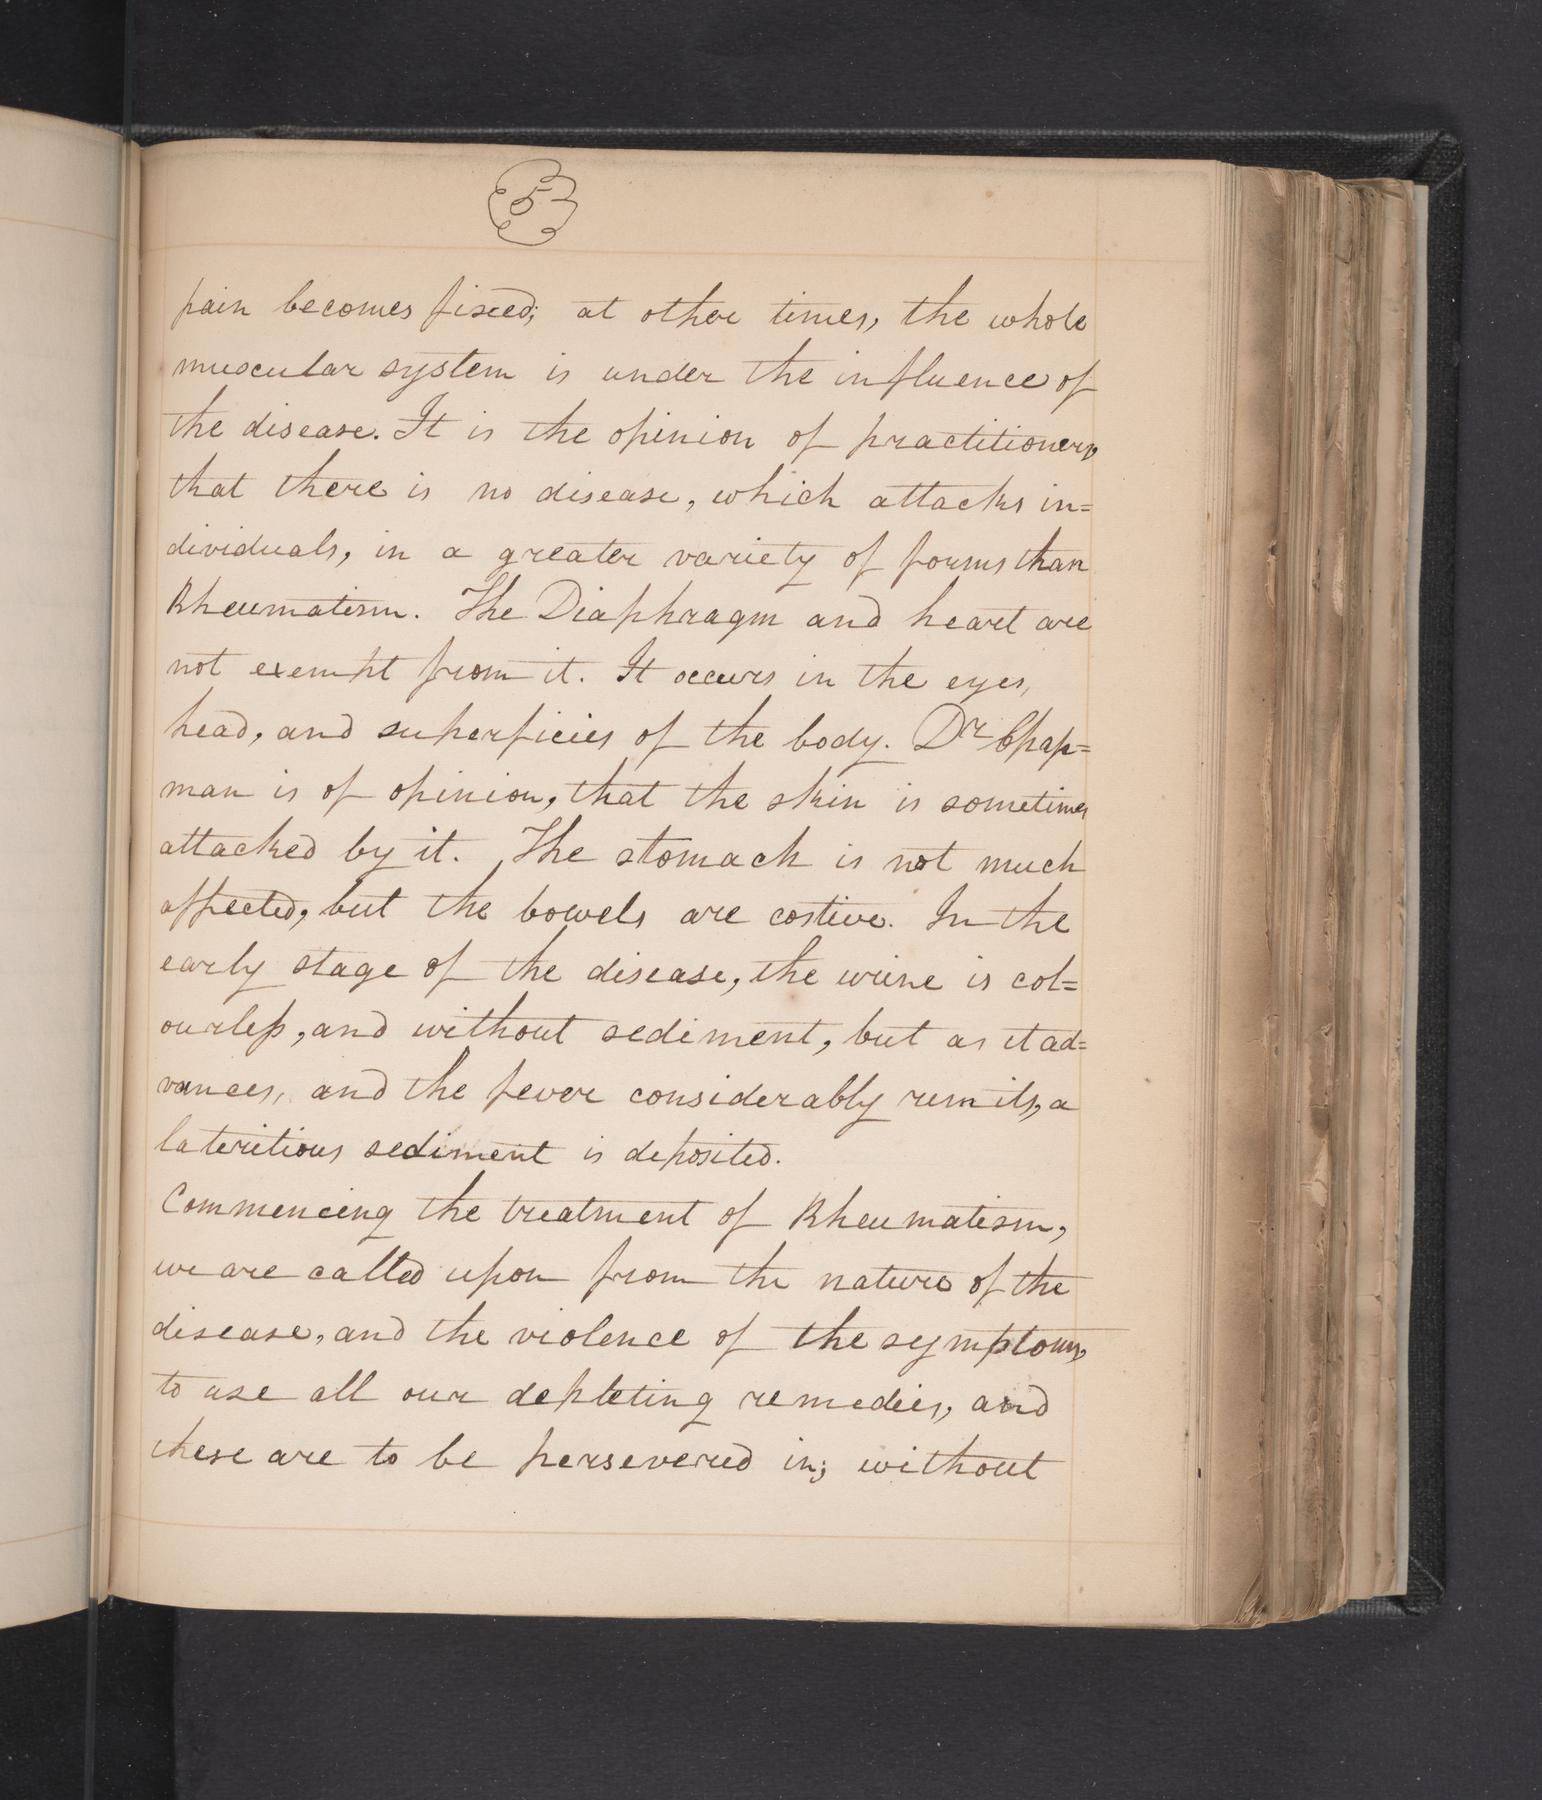 5
pain becomes fixed; at other times, the whole
muscular system is under the influence of
the disease. It is the opinion of practitioners
that there is no disease, which attacks in=
dividuals, in a greater variety of forms than
Rheumatism. The Diaphragm and heart are
not exempt from it. It occurs in the eyes,
head, and superficies of the body. Dr Chap=
man is of opinion, that the skin is sometimes
attacked by it. The stomach is not much
affected, but the bowels are costive. In the
early stage of the disease, the urine is col=
ourless, and without sediment, but as it ad=
vances, and the fever considerably remits, a
lateritious sediment is deposited.
Commencing the treatment of Rheumatism,
we are called upon from the nature of the
disease, and the violence of the symptoms,
to use all our depleting remedies, and
these are to be persevered in; without